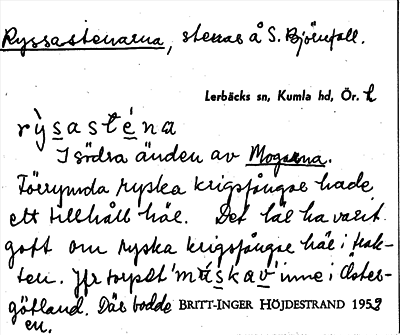 Ryssastenarna, stenar å S. Björnfall.
Lerbäcks sn, Kumla hd, Ör. l
rỳsasténa
I södra änden av Mogarna.
Förrymda ryska krigsfångar hade
ett tillhåll här. Det lär ha varit
gott om ryska krigsfångar här i trak-
ten. Jfr torpet 'múskav' inne i Öster-
götland. Där bodde BRITT-INGER HÖJDESTRAND 1953
en.